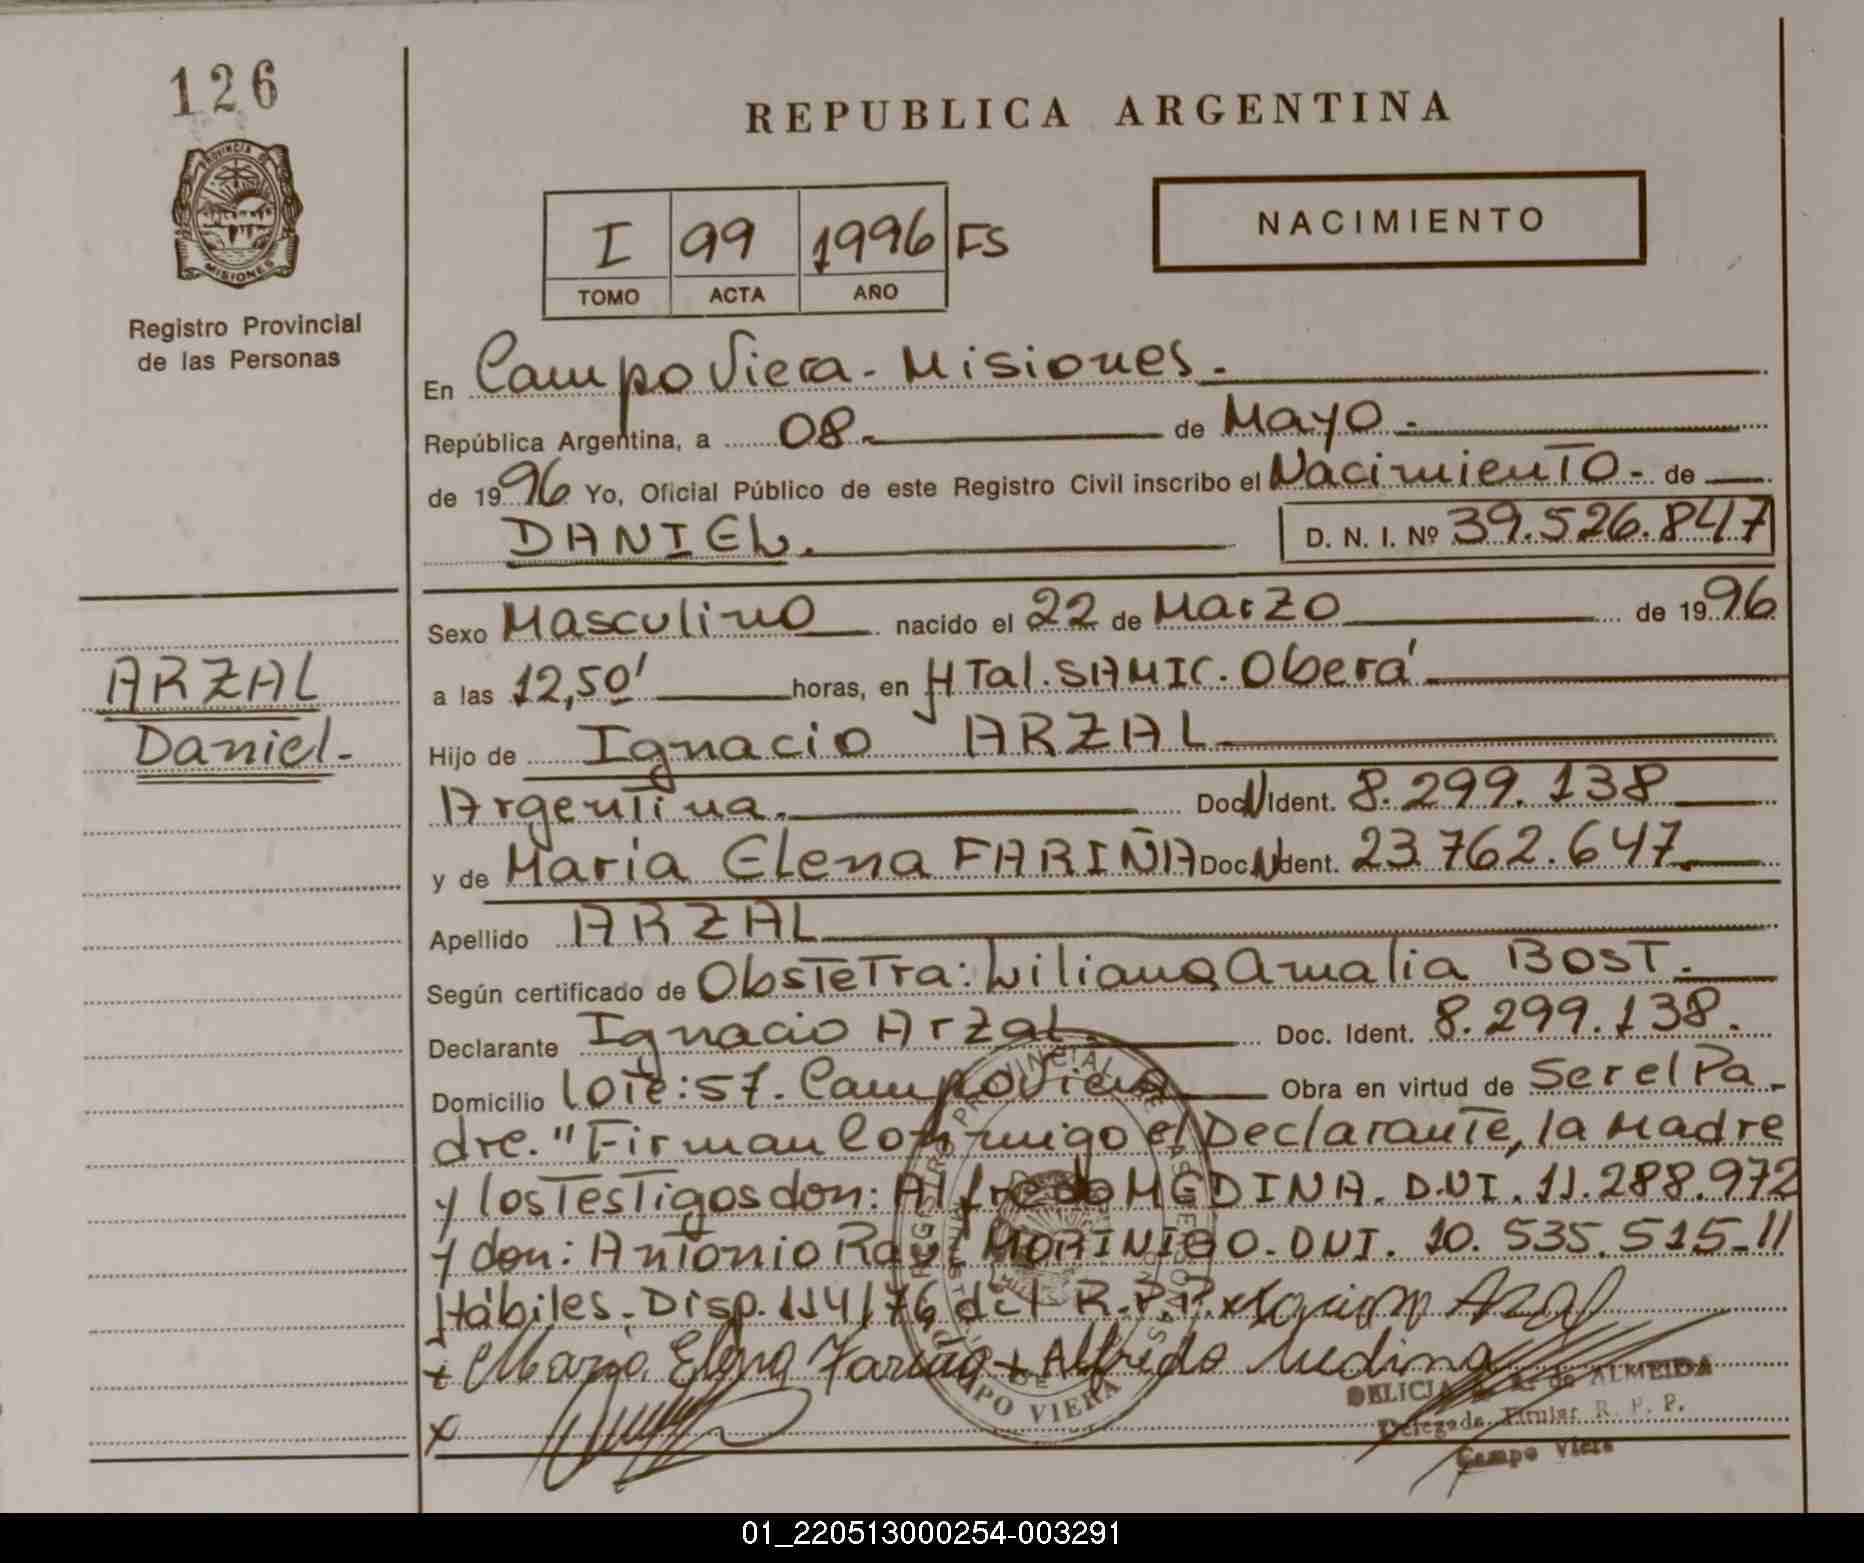 126
PROVINCIA DE
MISIONES
Registro Provincial
de las Personas
ARZAL
Daniel.-
REPUBLICA ARGENTINA
I 99 1996 FS
TOMO ACTA AÑO
NACIMIENTO
En Campo Viera - Misiones.-
República Argentina, a 08.- de Mayo.-
de 1996 Yo, Oficial Público de este Registro Civil inscribo el Nacimiento.- de
DANIEL. D. N. I. Nº 39.526.847
Sexo Masculino nacido el 22 de Marzo de 1996
a las 12,50' horas, en HTal. SAMIC. Oberá
Hijo de Ignacio ARZAL
Argentina. Doc.N Ident. 8.299.138
y de Maria Elena FARIÑA Doc.N Ident. 23.762.647.
Apellido ARZAL
Según certificado de Obstetra: Liliana Amalia BOST.
Declarante Ignacio Arzal Doc. Ident. 8.299.138.
Domicilio Lote: 57. Campo Viera Obra en virtud de Ser el Pa-
dre. "Firman Conmigo el Declarante, la Madre
y los Testigos don: Alfredo MEDINA. D.N.I. 11.288.972
y don: Antonio Raul MORINIGO. DNI. 10.535.515-11
Hábiles. Disp. 114/76 del R.P.P. x
x Maria Elena Fariña x Alfredo Medina
x
REGISTRO PROVINCIAL DE LAS PERSONAS
CAMPO VIERA
DELICIA de ALMEIDA
Delegada Titular R. P. P.
Campo Viera
01_220513000254-003291